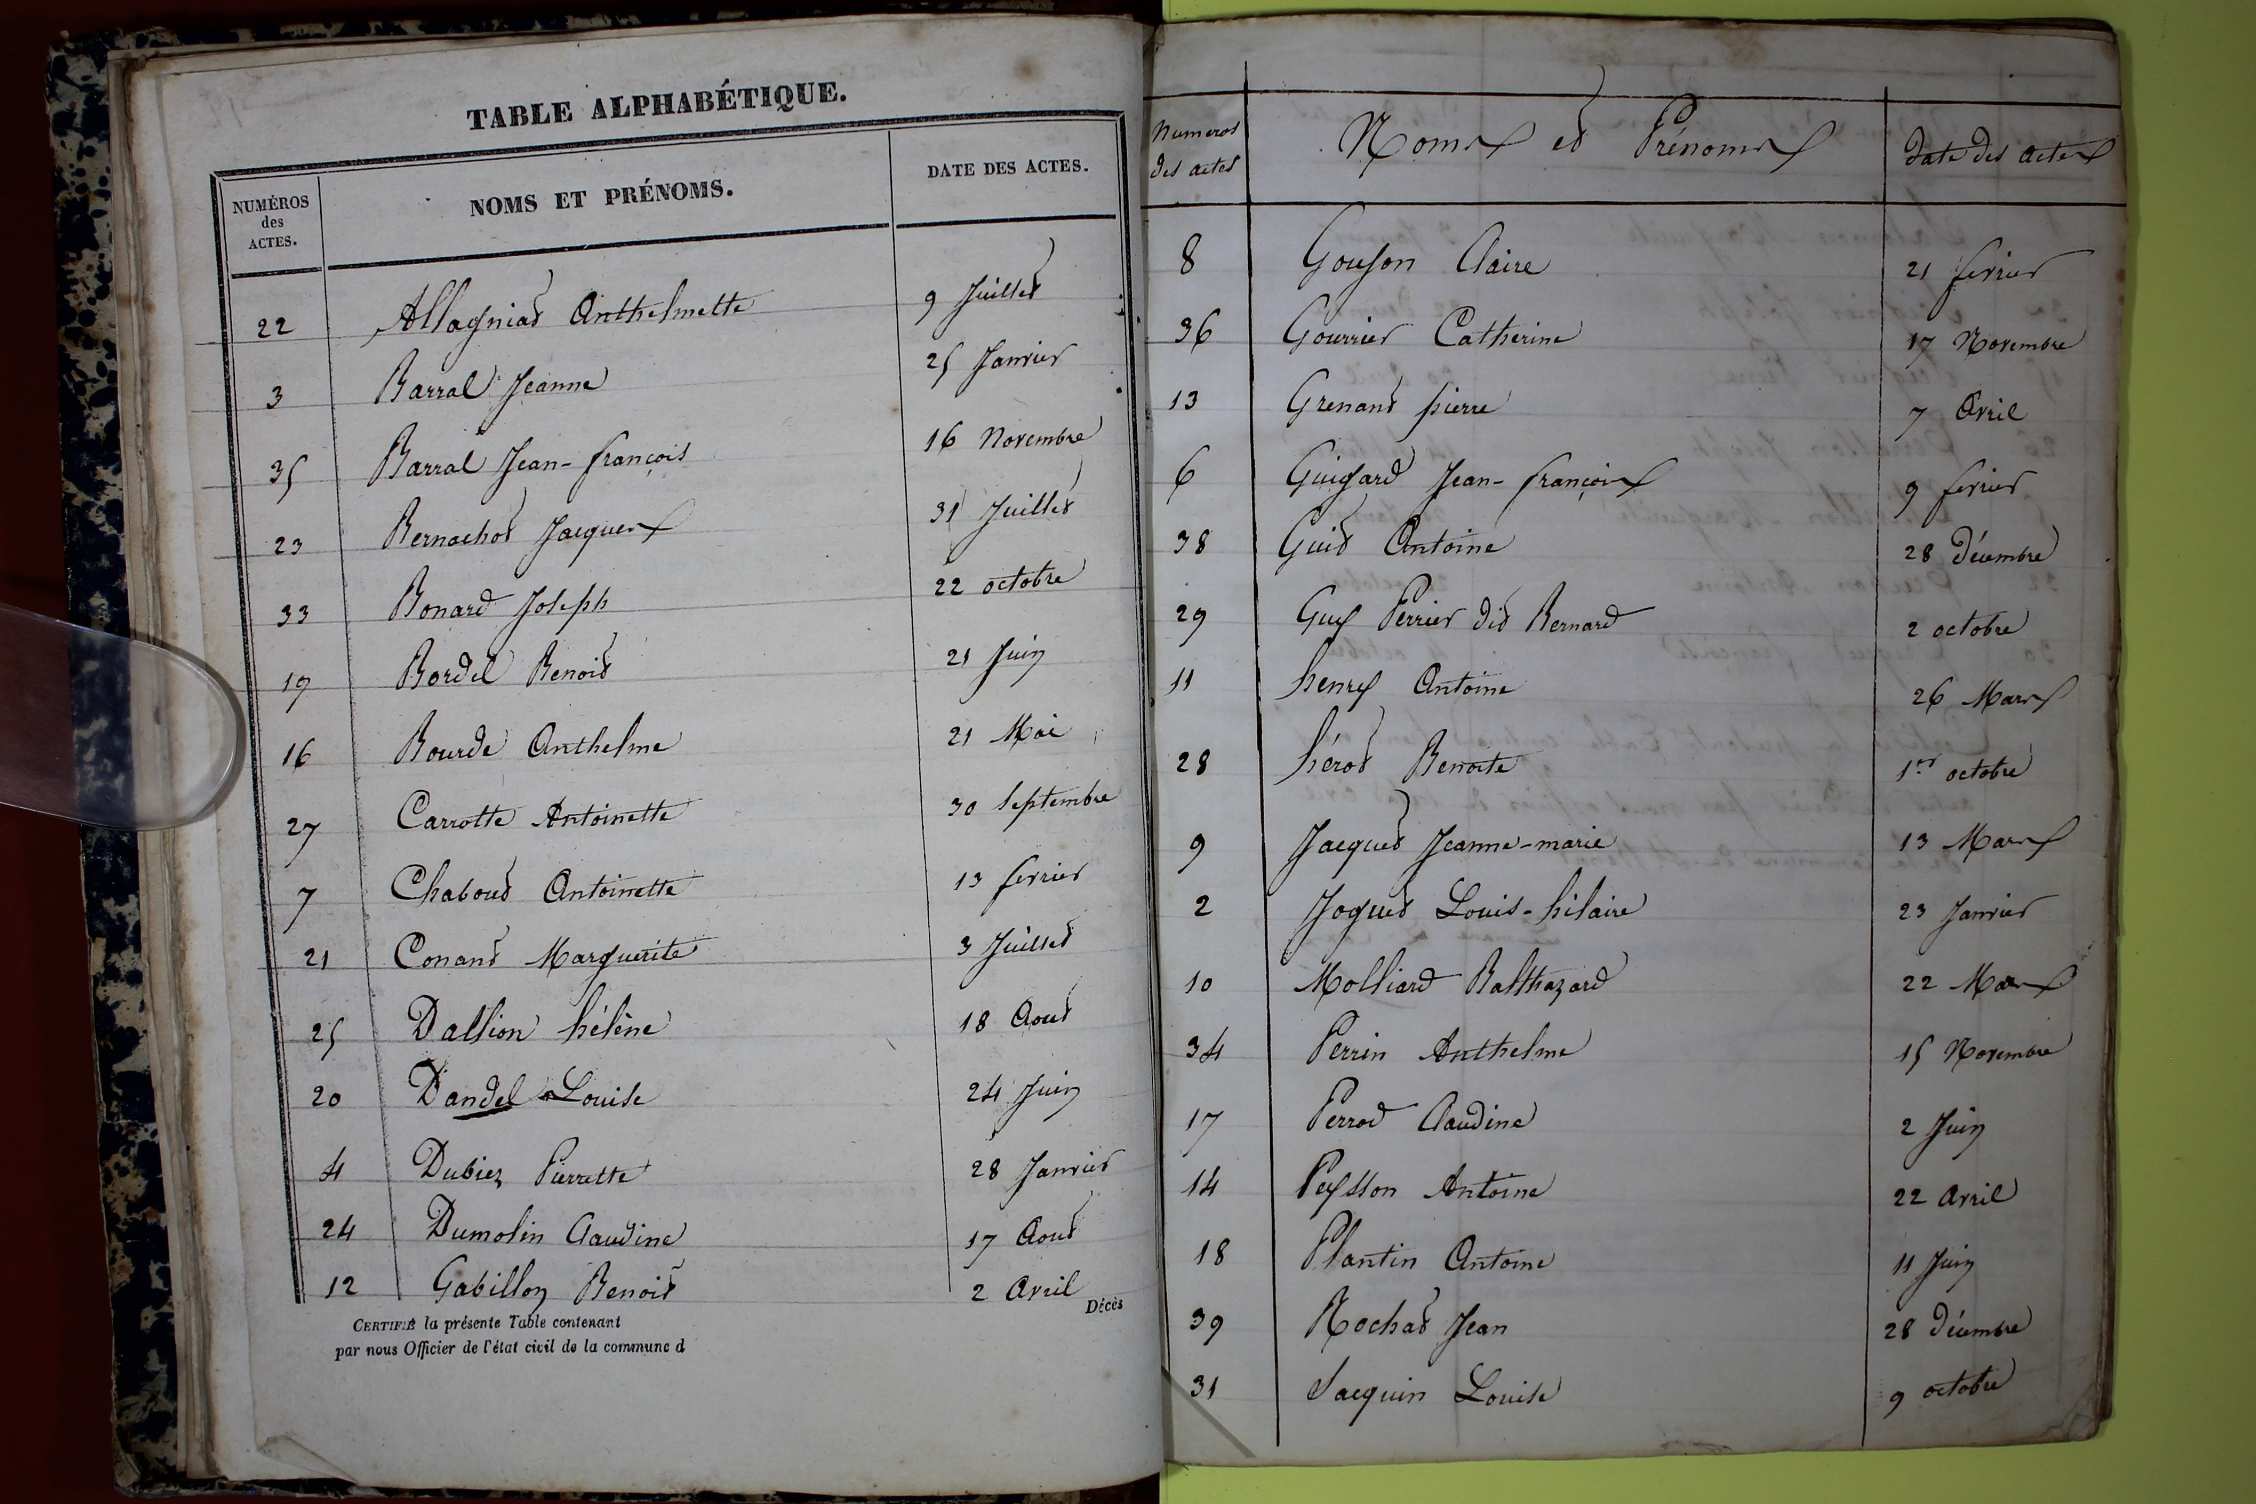 TABLE ALPHABÉTIQUE.
NUMÉROS des ACTES. NOMS ET PRÉNOMS. DATE DES ACTES.
22 Allagniat Anthelmette 9 Juillet
3 Barral Jeanne 25 Janvier
35 Barral Jean-françois 16 Novembre
23 Bernachot Jacques 31 Juillet
33 Bonard Joseph 22 octobre
19 Bordel Benoit 21 Juin
16 Bourde Anthelme 21 Mai
27 Carrotte Antoinette 30 septembre
7 Chaboud Antoinette 13 fevrier
21 Conand Marguerite 3 Juillet
25 Dallion hélène 18 Aout
20 Dandel Louise 24 Juin
4 Dubiez Pierrette 28 Janvier
24 Dumolin Claudine 17 Aout
12 Gabillon Benoit 2 Avril
Décès
CERTIFIÉ la présente Table contenant
par nous Officier de l'état civil de la commune d
Numeros des actes Noms et Prénoms date des actes
8 Goujon Claire 21 fevrier
36 Gourrier Catherine 17 Novembre
13 Grenand pierre 7 Avril
6 Guigard Jean-françois 9 fevrier
38 Guid Antoine 28 Décembre
29 Guy Perrier dit Bernard 2 octobre
11 henry Antoine 26 Mars
28 hérod Benoite 1er octobre
9 Jacques Jeanne-marie 13 Mars
2 Jogues Louis-hilaire 23 Janvier
10 Molliard Balthazard 22 Mars
34 Perrin Anthelme 15 Novembre
17 Perrod Claudine 2 Juin
14 Peysson Antoine 22 avril
18 Plantin Antoine 11 Juin
39 Rochas Jean 28 Décembre
31 Jacquin Louise 9 octobre